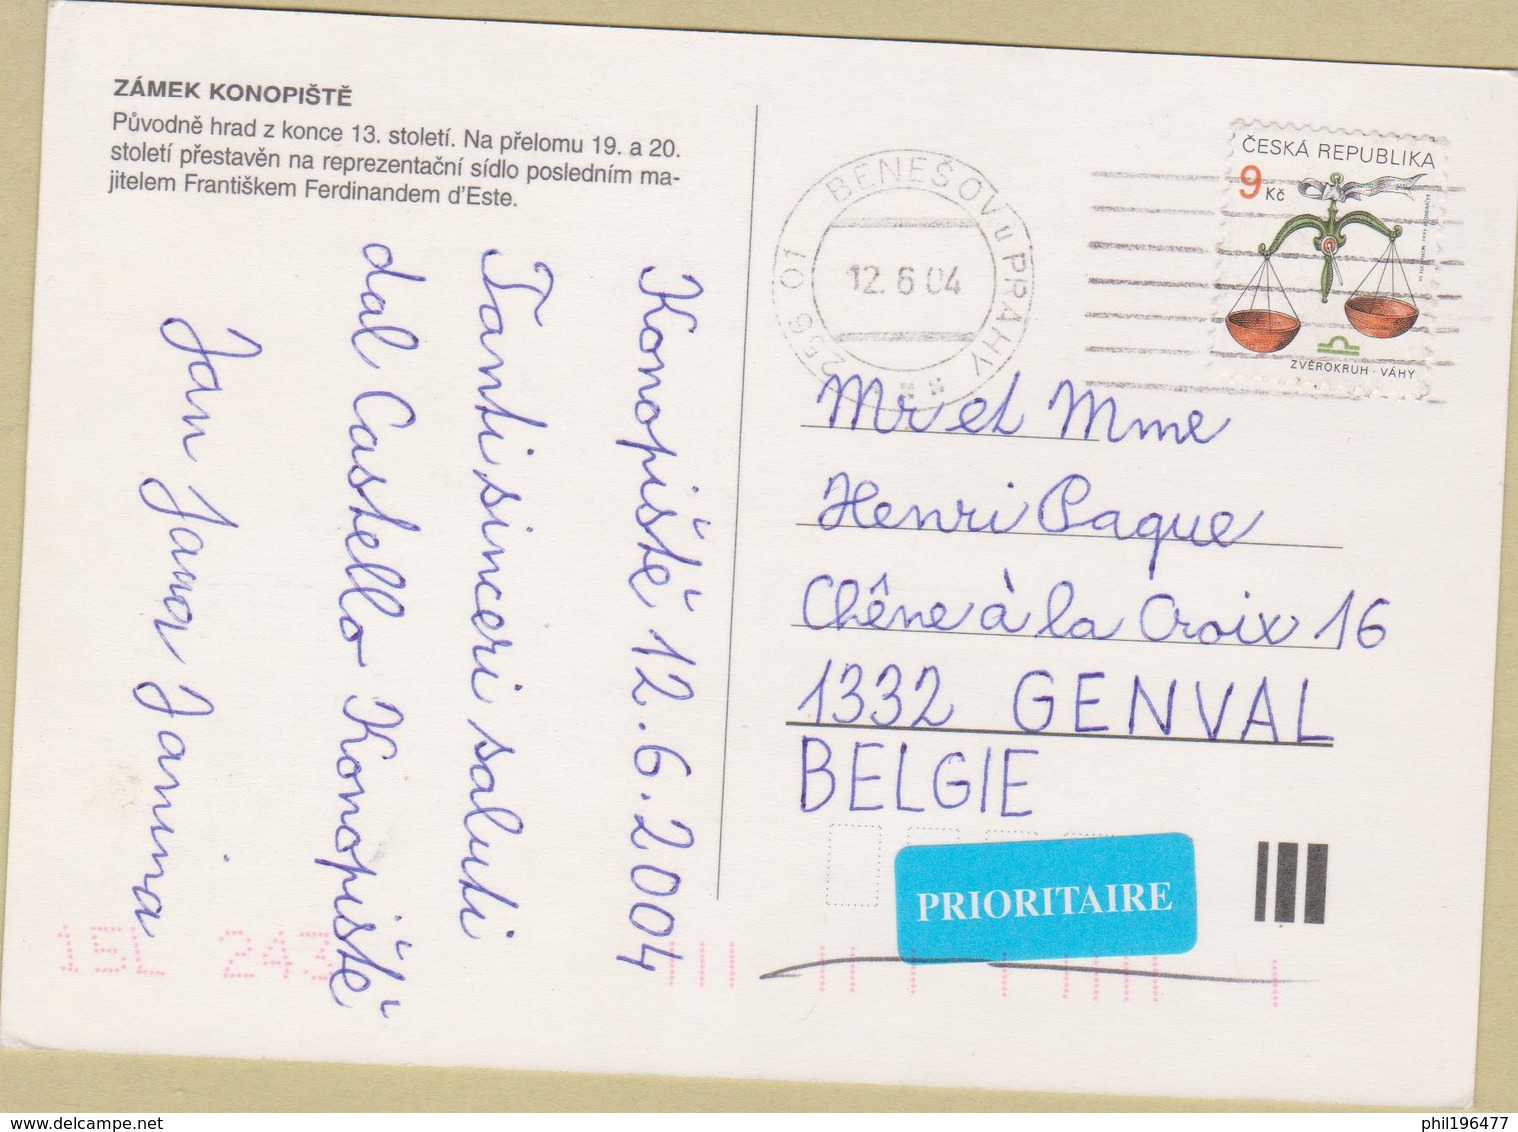 ZÁMEK KONOPIŠTĚ
Původně hrad z konce 13. století. Na přelomu 19. a 20.
století přestavěn na reprezentační sídlo posledním ma-
jitelem Františkem Ferdinandem d'Este.
Konopiště 12.6.2004
Tanti sinceri saluti
dal Castello Konopiště
Jan Jana Janina
256 01 BENEŠOV u PRAHY
12.6 04
ČESKÁ REPUBLIKA
9 Kč
ZVĚROKRUH · VÁHY
Mr et Mme
Henri Paque
Chêne à la Croix 16
1332 GENVAL
BELGIE
PRIORITAIRE
15L 243
delcampe.net
phil196477